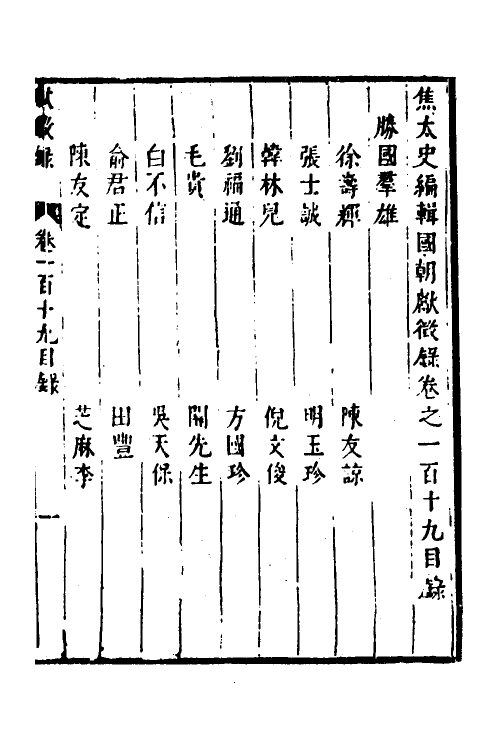 焦太史編輯國朝獻徵錄卷之一百十九目錄
勝國羣雄
徐壽輝 陳友諒
張士誠 明玉珍
韓林兒 倪文俊
劉福通 方國珍
毛貴 關先生
白不信 吳天保
俞君正 田豐
陳友定 芝麻李
獻徵錄 卷一百十九目錄 一